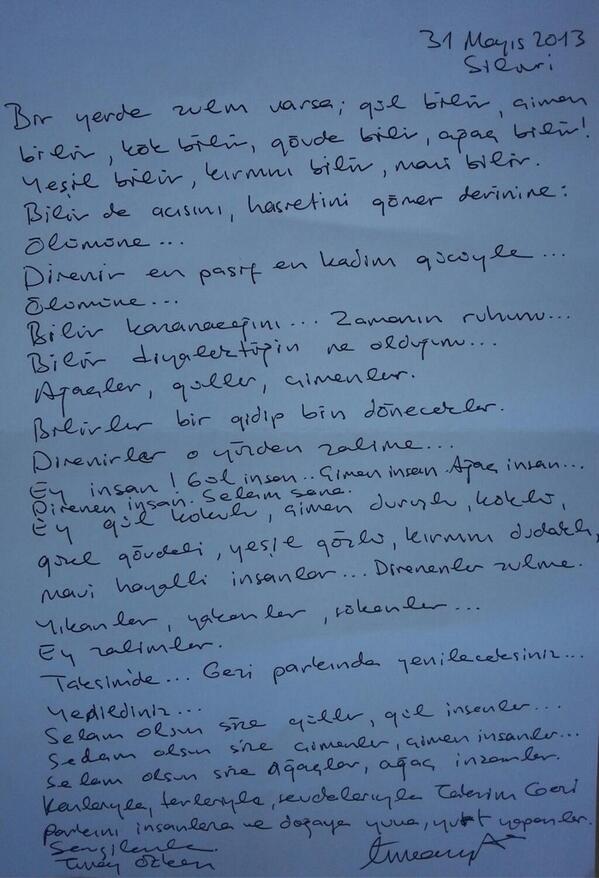 31 Mayıs 2013
Silivri
Bir yerde zulm varsa; gül bilir, çimen
bilir, kök bilir, gövde bilir, ağaç bilir!
Yeşil bilir, kırmızı bilir, mavi bilir.
Bilir de acısını, hasretini gömer derinine:
Ölümüne...
Direnir en pasif en kadim gücüyle...
Ölümüne...
Bilir kazanacağını... Zamanın ruhunu...
Bilir diyalektiğin ne olduğunu...
Ağaçlar, güller, çimenler.
Bilirler bir gidip bin dönecekler.
Direnirler o yüzden zalime...
Ey insan! Gül insan.. Çimen insan. Ağaç insan...
Direnen insan. Selam sana.
Ey gül kokulu, çimen duruşlu, köklü,
güzel gövdeli, yeşil gözlü, kırmızı dudaklı,
mavi hayalli insanlar... Direnenler zulme.
Yıkanlar, yakanlar, sökenler...
Ey zalimler.
Taksimde... Gezi parkında yenileceksiniz...
Yenildiniz...
Selam olsun size güller, gül insanlar...
Selam olsun size çimenler, çimen insanlar...
Selam olsun size Ağaçlar, ağaç insanlar.
Kanlarıyla, terleriyle, sevdalarıyla Taksim Gezi
Parkını insanlara ve doğaya yuva, yurt yapanlar.
Sevgilerle
Tuncay Özkan